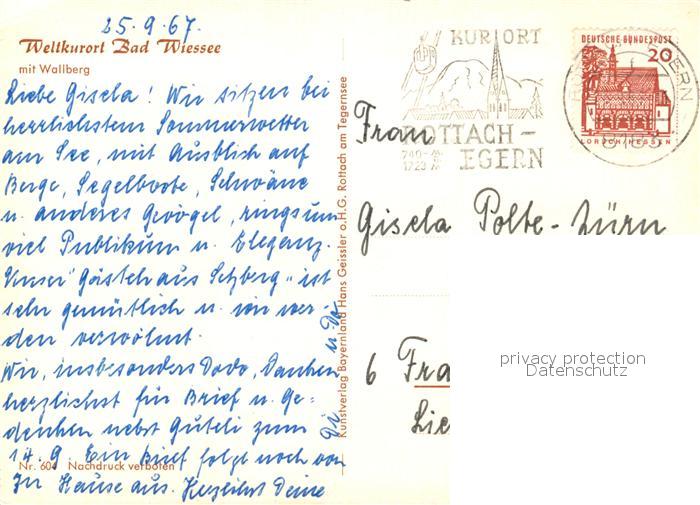 25.9.67.
Weltkurort Bad Wiessee
mit Wallberg
Liebe Gisela! Wir sitzen bei
herrlichstem Sommerwetter
am See, mit Ausblick auf
Berge, Segelboote, Schwäne
u. anderes Gevögel, ringsum
viel Publikum u. Eleganz.
Unser "Gästehaus Setzberg" ist
sehr gemütlich u. wir wer-
den verwöhnt.
Wir, insbesonders Dodo, danken
herzlichst für Brief u. Ge-
denken nebst Guteli zum
14.9. Ein Brief folgt noch von
Zu Hause aus. Herzlichst Deine
Nr. 604 Nachdruck verboten
Kunstverlag Bayernland Hans Geissler o.H.G. Rottach am Tegernsee
KURORT
ROTTACH-
EGERN
DEUTSCHE BUNDESPOST
20
LORSCH/HESSEN
Frau
Gisela Polte-Zürn
6 Fra
Lie
privacy protection
Datenschutz